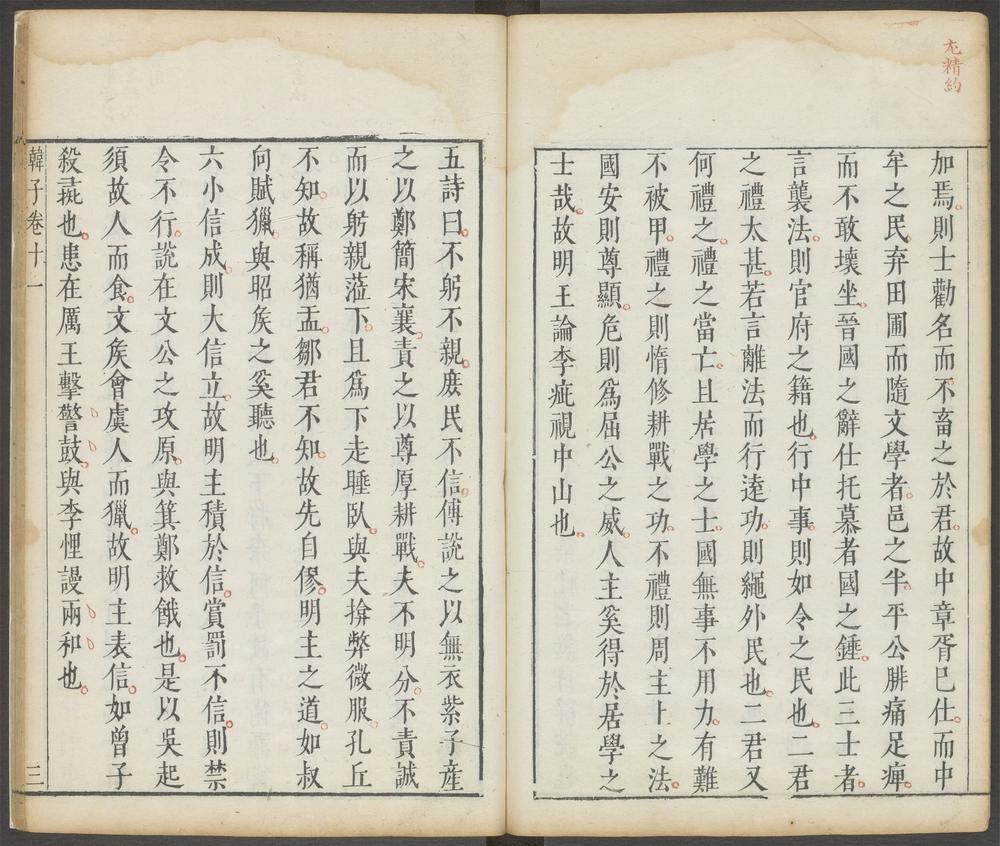 尤精約
加焉則士勸名而不畜之於君故中章胥已仕而中
牟之民弃田圃而隨文學者邑之半平公腓痛足痺
而不敢壞坐晉國之辭仕托慕者國之錘此三士者
言襲法則官府之籍也行中事則如令之民也二君
之禮太甚若言離法而行逺功則繩外民也二君又
何禮之禮之當亡且居學之士國無事不用力有難
不被甲禮之則惰修耕戰之功不禮則周主上之法
國安則尊顯危則爲屈公之威人主奚得於居學之
士哉故明王論李疵視中山也
五詩曰不躬不親庶民不信傅說之以無衣紫子産
之以鄭簡宋襄責之以尊厚耕戰夫不明分不責誠
而以躬親蒞下且爲下走睡臥與夫揜弊微服孔丘
不知故稱猶盂鄒君不知故先自僇明主之道如叔
向賦獵與昭矦之奚聽也
六小信成則大信立故明主積於信賞罰不信則禁
令不行說在文公之攻原與箕鄭救餓也是以吳起
須故人而食文矦會虞人而獵故明主表信如曾子
殺彘也患在厲王擊警鼓與李悝謾兩和也
韓子卷十一
三